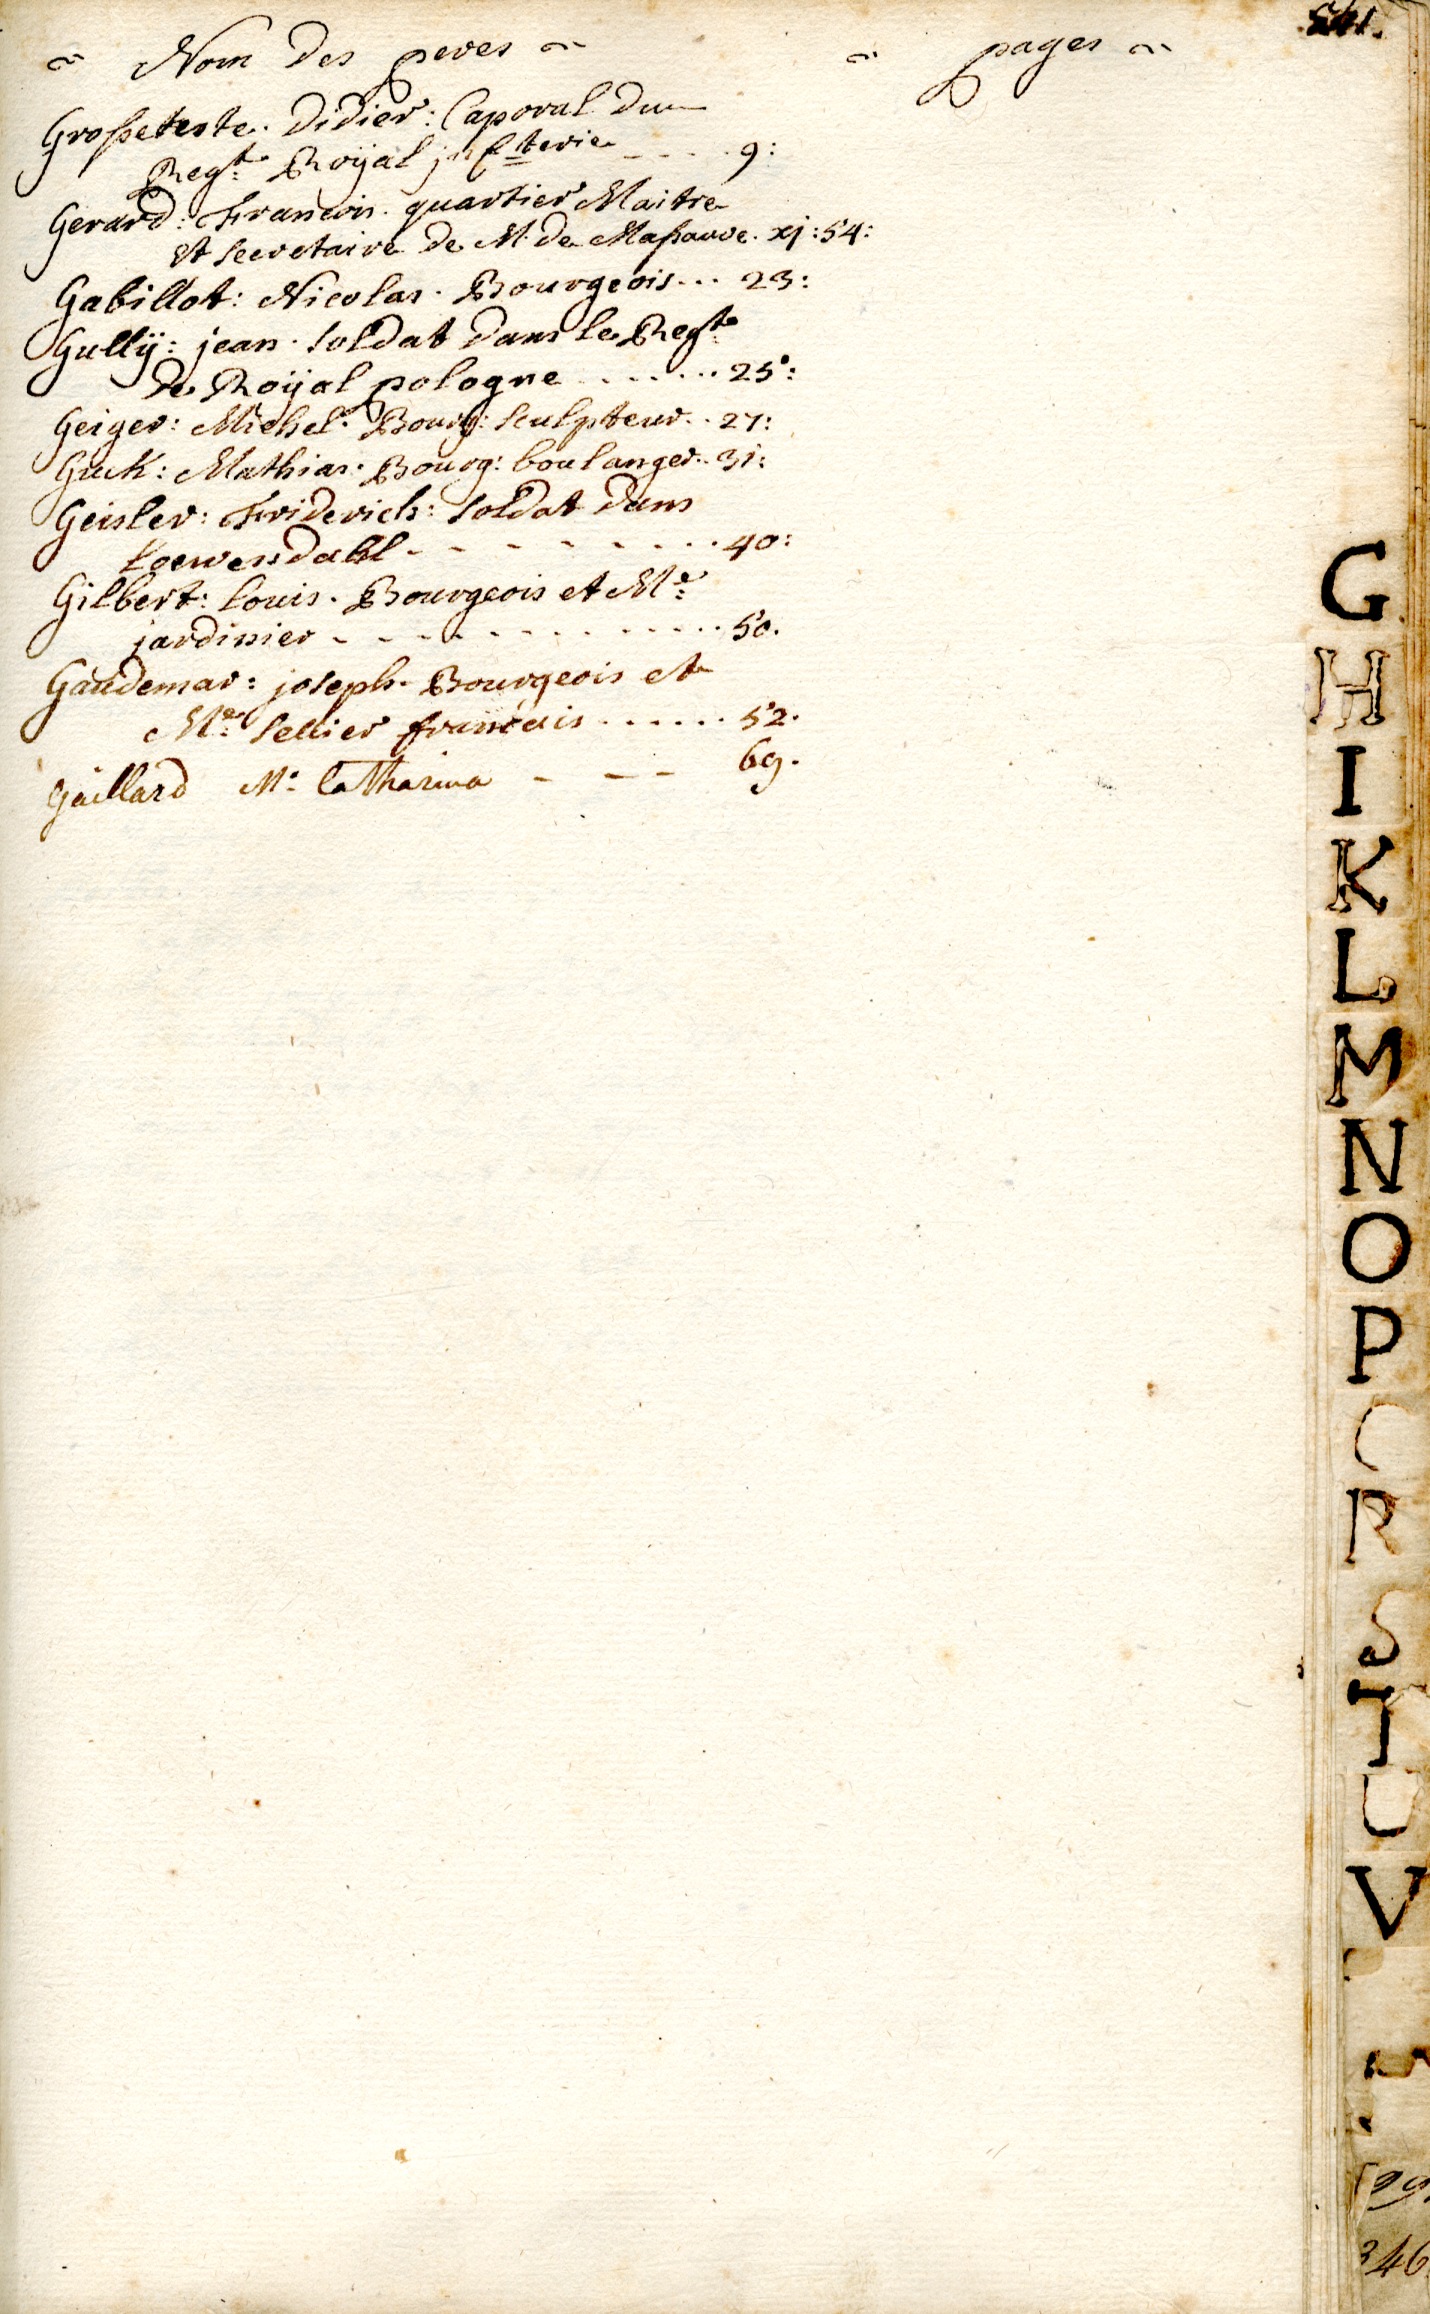 ~ Nom des peres ~ ~ pages ~
Grosseteste. Didier: Caporal du
Regt: Roÿal jnfterie - - - . . 9:
Gerard: Francois. quartier Maitre
et secretaire de M. de Massauve. xj: 54:
Gabillot: Nicolas. Bourgeois... 23:
Gullÿ: jean. soldat dans le Regt:
de Roÿal pologne . . . . . . . 25:
Geiger: Michel. Bourg: sculpteur.. 27:
Guck: Mathias. Bourg: boulanger.. 31:
Geisler: Friderich: soldat dans
Loewendahl - - - - - - . . . 40:
Gilbert: louis. Bourgeois et Me:
jardinier - - - - - - . . . . . . 50.
Gaudemar: joseph. Bourgeois et
Me: sellier francais . . . . . . 52.
Gaillard M: Catharina - - - 69.
G
H
I
K
L
M
N
O
P
R
S
T
U
V
346